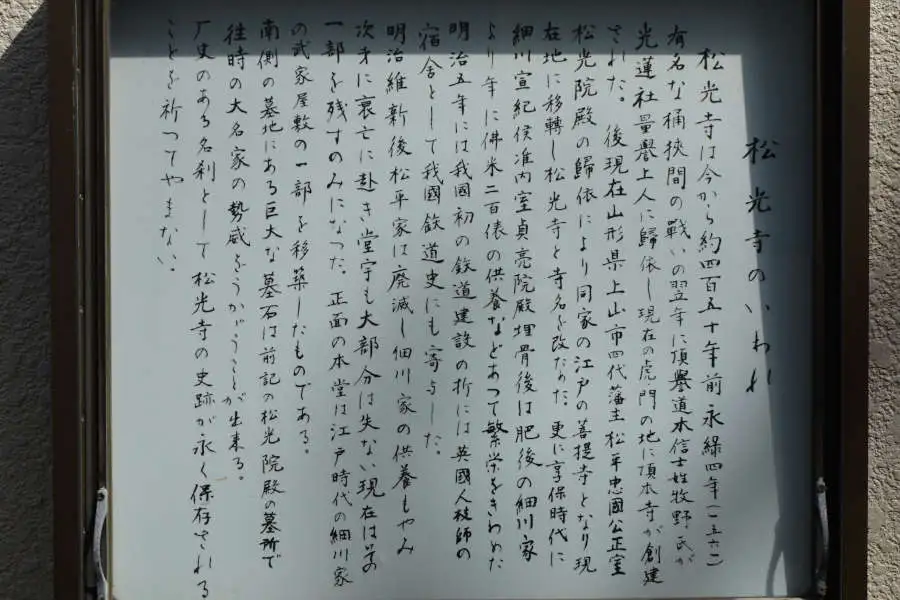 松光寺のいわれ
松光寺は今から約四百五十年前永綠四年(一五六一)
有名な桶挾間の戰いの翌年に頂譽道本信士姓牧野氏が
光蓮社量譽上人に歸依し現在の虎門の地に頂本寺が創建
された。後現在山形県上山市四代藩主松平忠國公正室
松光院殿の歸依により同家の江戸の菩提寺となり現
在地に移轉し松光寺と寺名を改ためた。更に享保時代に
細川宣紀侯准内室貞亮院殿埋骨後は肥後の細川家
より年に佛米二百俵の供養などあつて繁栄をきわめた
明治五年には我國初の鉄道建設の折には英國人技師の
宿舎として我國鉄道史にも寄与した。
明治維新後松平家は廃滅し細川家の供養もやみ
次才に衰亡に赴き堂宇も大部分は失ない現在はその
一部を残すのみになつた。正面の本堂は江戸時代の細川家
の武家屋敷の一部を移築したものである。
南側の墓地にある巨大な墓石は前記の松光院殿の墓所で
往時の大名家の勢威をうかがうことが出来る。
厂史のある名刹として松光寺の史跡が永く保存される
ことを祈つてやまない。